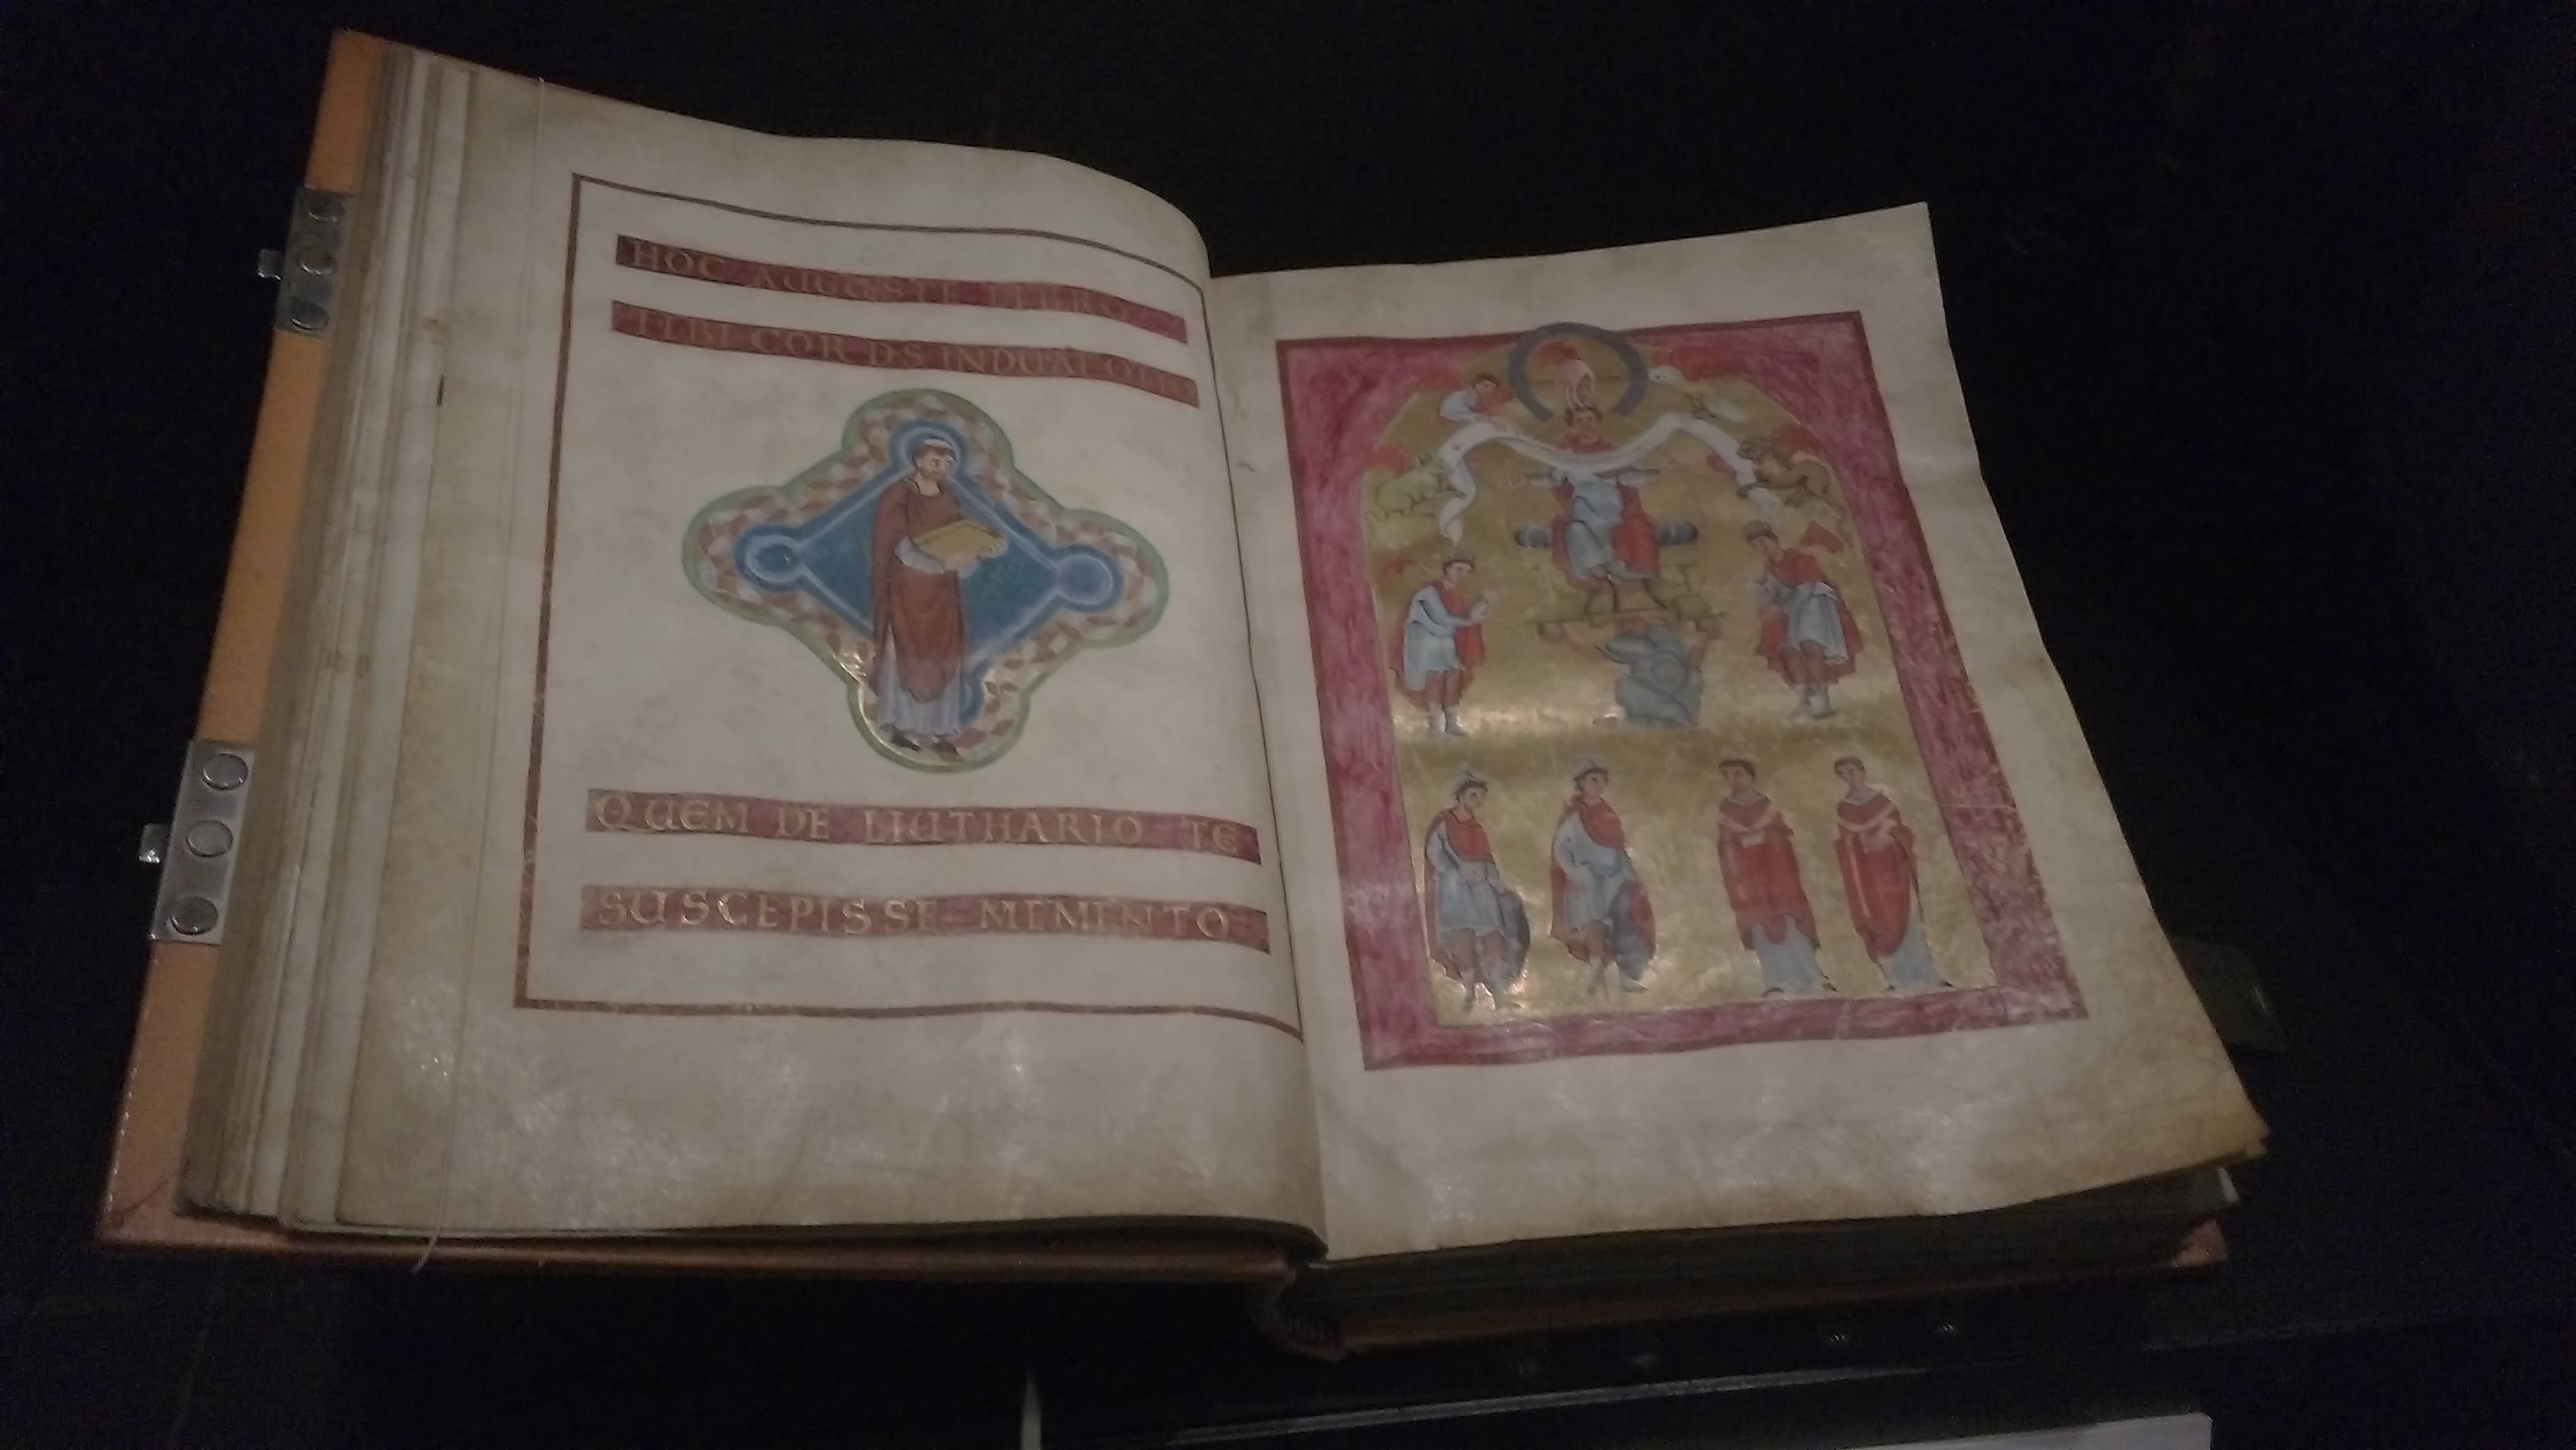 HOC AUGUSTE LIBRO
TIBI COR DS INDUAT OTTO
QUEM DE LIUTHARIO TE
SUSCEPISSE MEMENTO